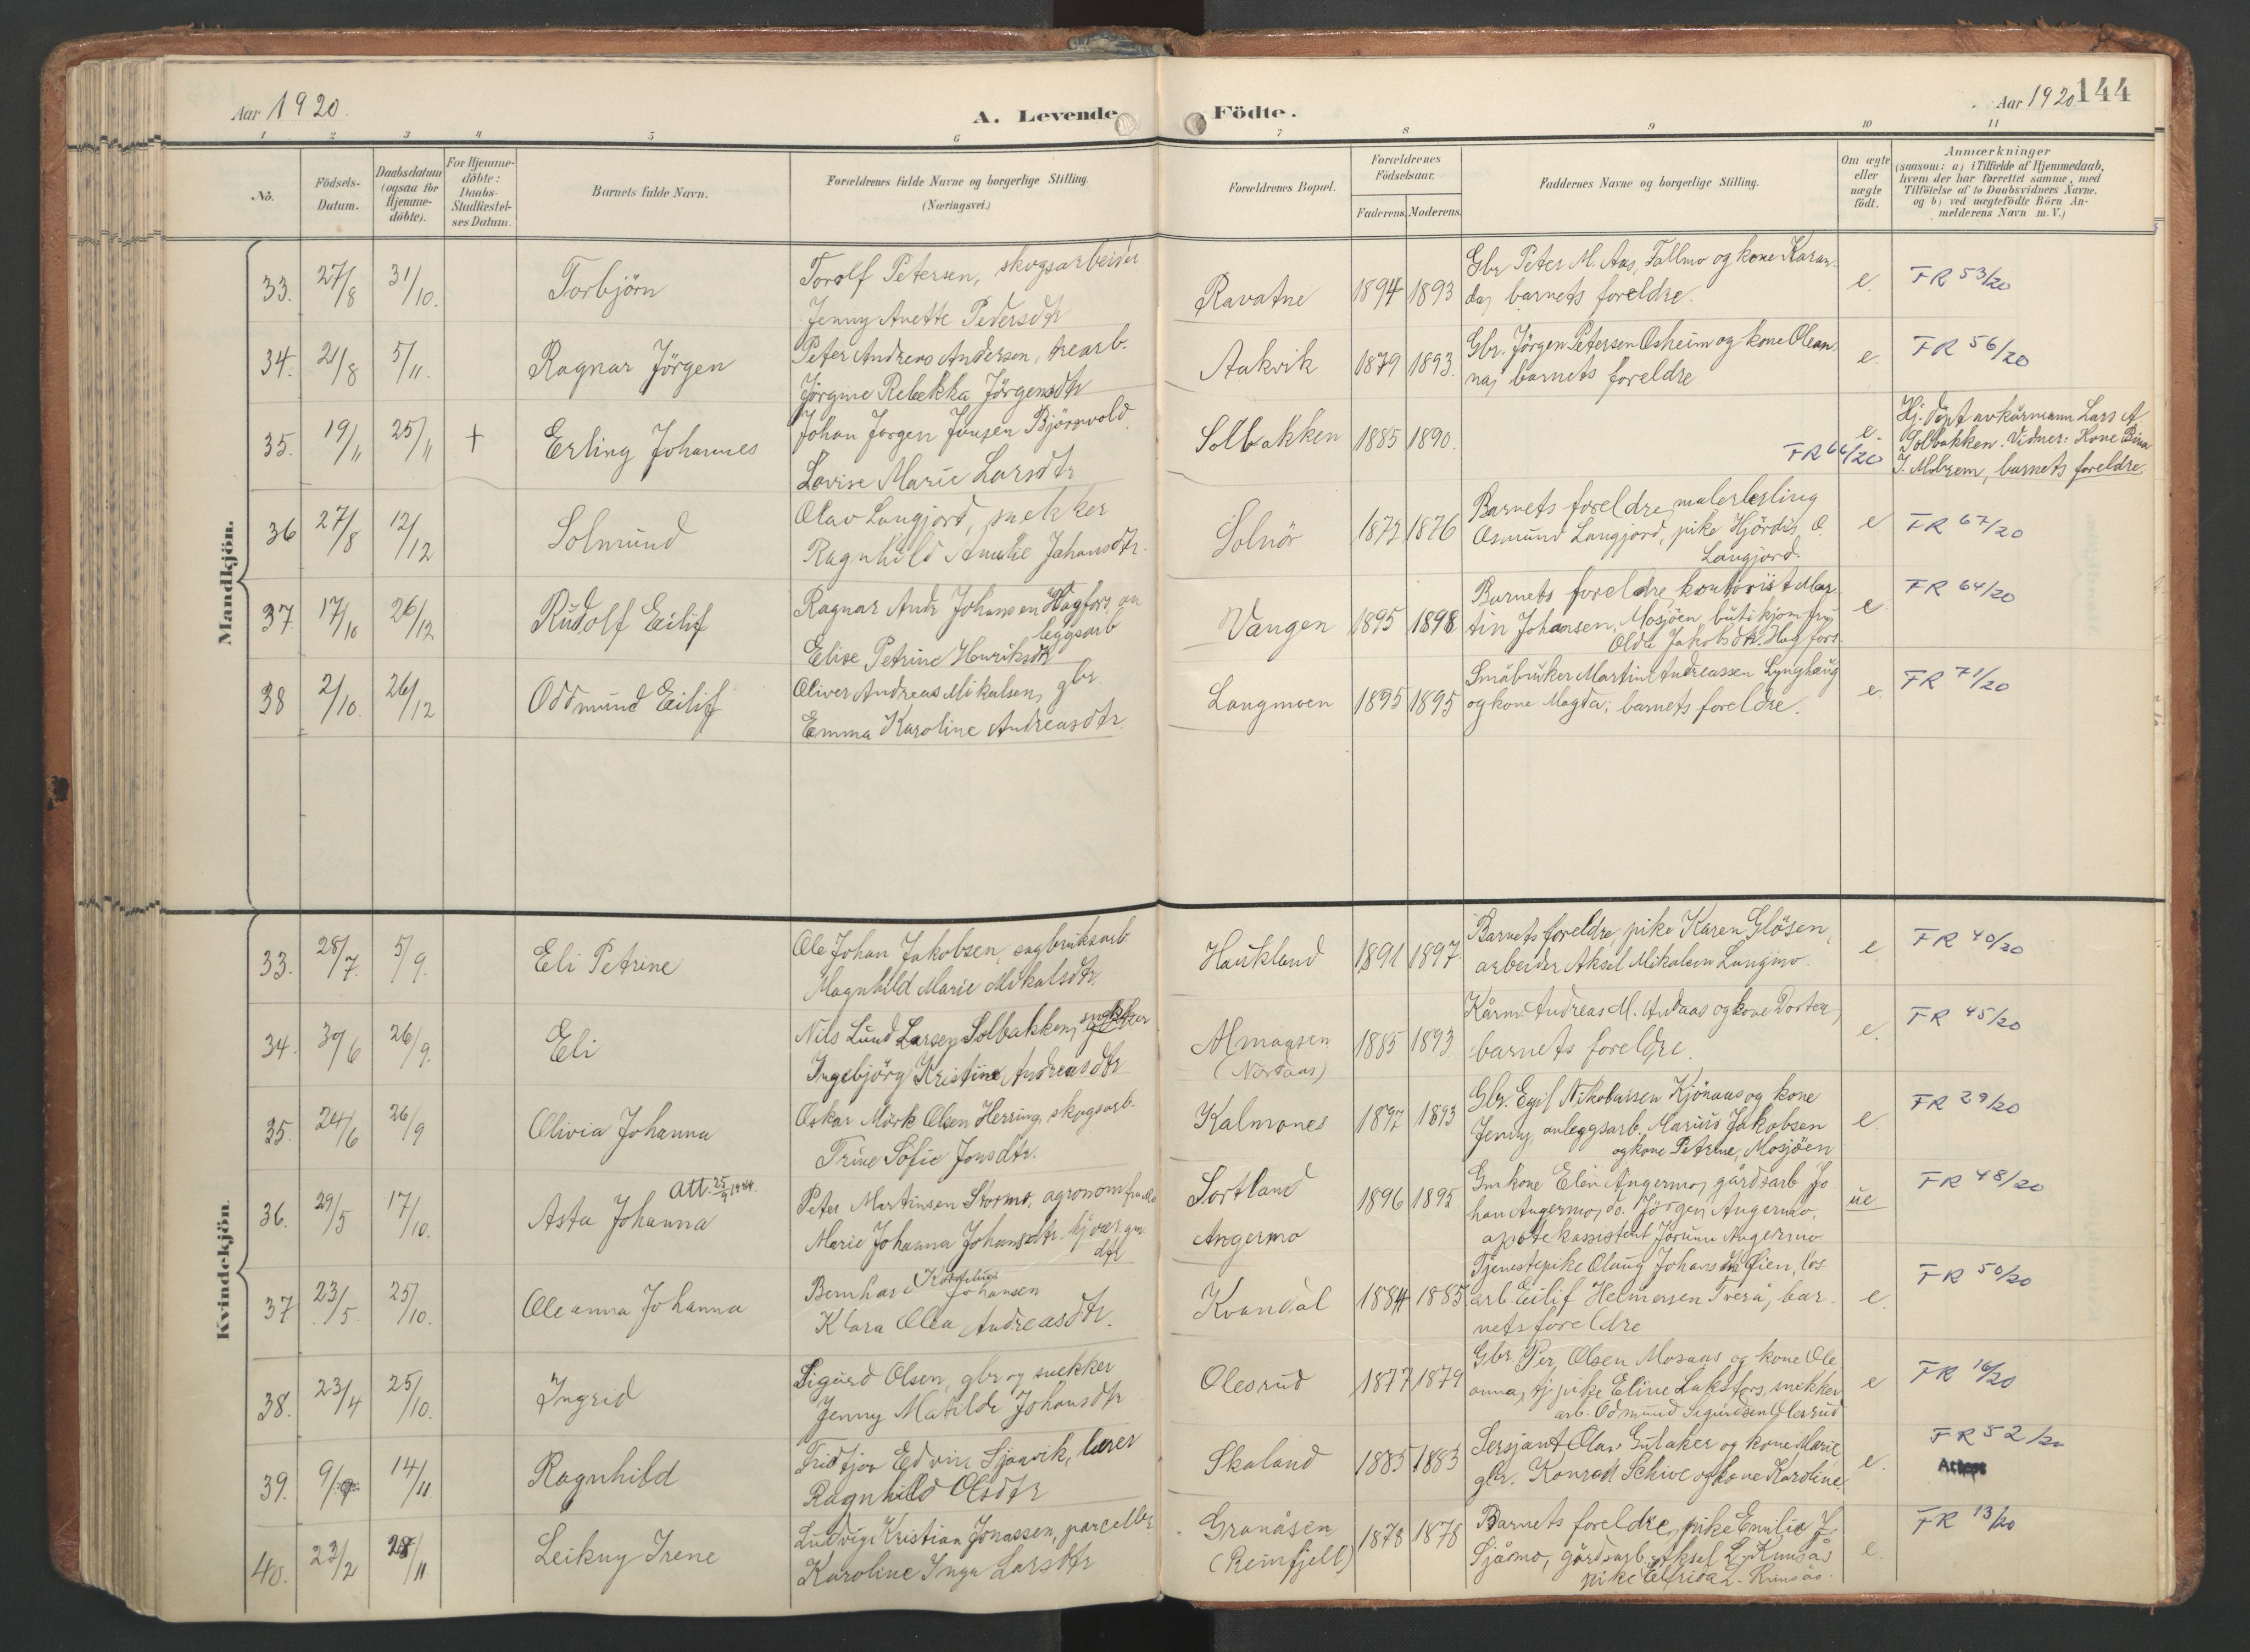 Aar 1920.
A. Levende Födte.
Aar 1920 144
1 2 3 4 5 6 7 8 9 10 11
No.
Födsels-Datum.
Daabsdatum (ogsaa for Hjemme-döbte).
For Hjemme-döbte: Daabs-Stadfæstel-ses Datum.
Barnets fulde Navn.
Forældrenes fulde Navne og borgerlige Stilling.
(Næringsvei.)
Forældrenes Bopæl.
Forældrenes Födselsaar.
Faderens. Moderens.
Faddernes Navne og borgerlige Stilling.
Om ægte eller uægte födt.
Anmærkninger
(saasom: a) i Tilfælde af Hjemmedaab, hvem der har forrettet samme, med Tilföielse af to Daabsvidners Navne, og b) ved uægtefödte Börn An-melderens Navn m. V.)
Mandkjön.
33. 27/8 31/10. Torbjörn
Torolf Petersen, skogsarbeider
Jenny Anette Pedersdtr
Ravatne 1894 1893
Gbr Peter M. Aas, Fallmo og kone Karan-
da, barnets foreldre.
e. FR 53/20
34. 21/8 5/11. Ragnar Jörgen
Peter Andreas Andersen, trearb.
Jörgine Rebekka Jörgensdtr
Aakvik 1879 1893.
Gbr. Jörgen Petersen Osheim og kone Olean-
na, barnets foreldre
e. FR 56/20
35. 19/11 25/11 + Erling Johannes
Johan Jörgen Jensen Björnvold.
Lovise Marie Larsdtr
Solbakken 1885 1890.
e. FR 66/20
Hj. döpt av kårmann Lars A
Solbakken. Vidner: Kone Bina
J. Mobrem, barnets foreldre.
36 27/8 12/12 Solmund
Olav Langjord, snekker
Ragnhild Amalie Johansdtr.
Solnör 1872 1876
Barnets foreldre, malerlerling
Osmund Langjord, pike Hjördis O.
Langjord.
e. FR 67/20
37. 17/10 26/12 Rudolf Eilif
Ragnar Andr Johansen Hagfors, an
leggsarb
Elise Petrine Henriksdtr
Vangen 1895 1898
Barnets foreldre, kontorist Mar
tin Johansen, Mosjöen, butikjomfru
Olde Jakobsdtr. Hagfors.
e. FR 64/20
38 2/10. 26/12 Oddmund Eilif
Oliver Andreas Mikalsen, gbr.
Emma Karoline Andreasdtr.
Langmoen 1895 1895
Småbruker Martin Andreassen Lynghaug
og kone Magda, barnets foreldre.
e. FR 71/20
Kvindekjön.
33. 28/7. 5/9. Eli Petrine
Ole Johan Jakobsen, sagbruksarb
Magnhild Marie Mikalsdtr.
Haukland 1891 1897
Barnets foreldre pike Karen Glösen,
arbeider Aksel Mikalsen Langmo.
e FR 40/20
34. 30/6 26/9. Eli
Nils Lund Larsen Solbakken, snekker
Ingebjörg Kristine Andreasdtr
Almåsen
(Nordaas)
1885 1893
Kårm. Andreas M. Andaas og kone Dortea,
barnets foreldre.
e. FR 45/20
35. 24/6 26/9 Olivia Johanna
Oskar Mörk Olsen Herring, skogsarb.
Trine Sofie Jonsdtr.
Kalmones 1897 1893
Gbr. Egil Nikolaisen Kjönaas og kone
Jenny, anleggsarb. Marius Jakobsen
og kone Petrine, Mosjöen
e. FR 29/20
36. 29/5 17/10. Asta Johanna
Att. 25/9 1944.
Peter Martinsen Stormo, agronom
Marie Johanna Johansdtr.
Sortland
Angermo
1896 1895
Gmkone Elen Angermo, gårdsarb Jo
han Angermo, do. Jörgen Angermo,
apotekassistent Jorunn Angermo
ue FR 48/20
37 23/5. 25/10. Oleanna Johanna
Bernhard Kornelius Johansen
Klara Olea Andreasdtr.
Kvandal 1884 1885
Tjenestepike Olaug Johansdtr Öien, los
arb. Eilif Helmersen Tverå, bar-
nets foreldre
e. FR 50/20
38. 23/4 25/10. Ingrid
Sigurd Olsen, gbr og snekker
Jenny Matilde Johansdtr
Olesrud 1877 1879
Gbr. Per Olsen Mosaas og kone Ole
anna, tj. pike Eline Laksfors, snekker
arb. Odmund Sigurdsen Olesrud
e FR 16/20
39. 9/9 14/11. Ragnhild
Fridtjov Edvin Sjaavik, lærer
Ragnhild Olsdtr
Skaland 1885 1883
Sersjant Olav Gulaker og kone Marie
gbr. Konrad Schive og kone Karoline.
e. FR 52/20
Attest
40. 23/2 28/11 Leikny Irene
Ludvig Kristian Jonassen, parcellbr
Karoline Inga Larsdtr
Granåsen
(Reinfjell)
1878 1878
Barnets foreldre, pike Emilie J.
Sjåmo, gårdsarb. Aksel L. Kunsås
pike Elfrida L. Kunsås.
e. FR 13/20